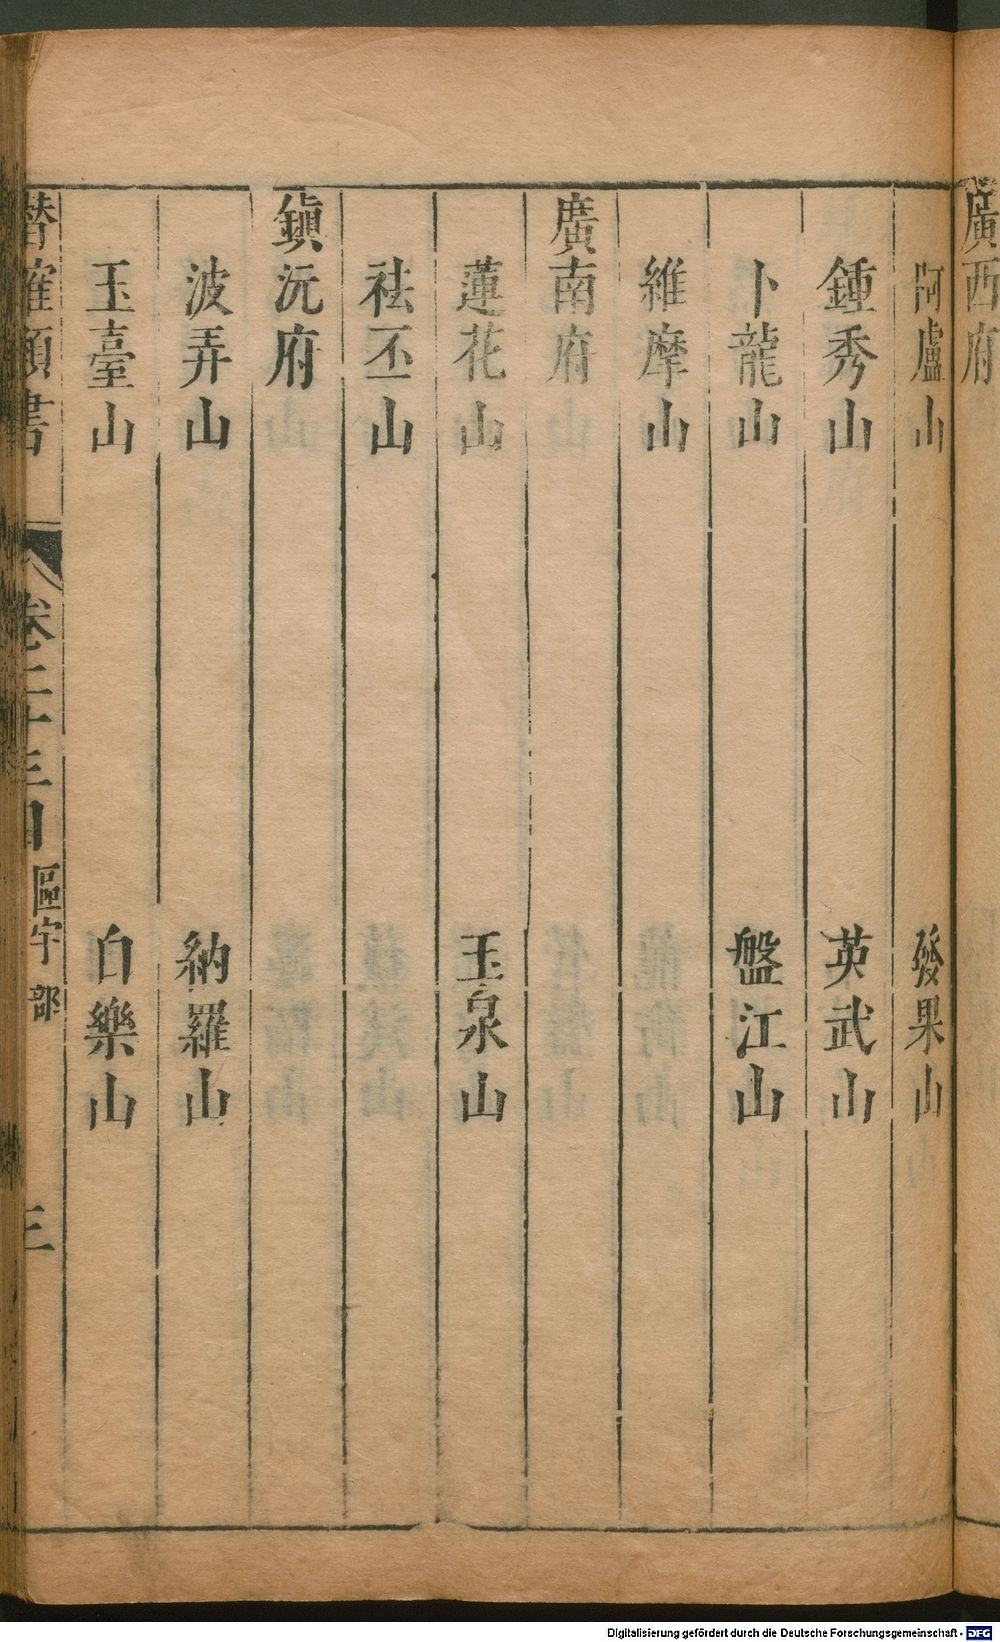 廣西府
阿盧山 發果山
鍾秀山 英武山
卜龍山 盤江山
維摩山
廣南府
蓮花山 玉泉山
祛丕山
鎮沅府
波弄山 納羅山
玉臺山 白樂山
潛確類書 卷二十三目 區宇部 三
Digitalisierung gefördert durch die Deutsche Forschungsgemeinschaft - DFG